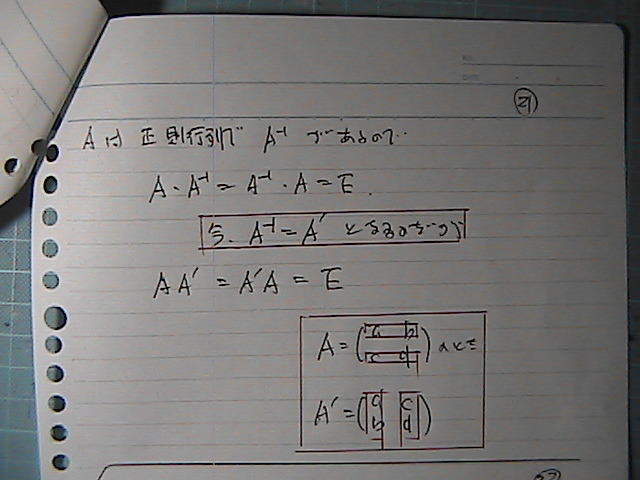 NO.
DATE
㉑
Aは 正則行列で A⁻¹ があるので…
A・A⁻¹ = A⁻¹・A = E.
今、A⁻¹ = A′ と
AA′ = A′A = E
A = (a b
c d) のとき
A′ = (a c
b d)